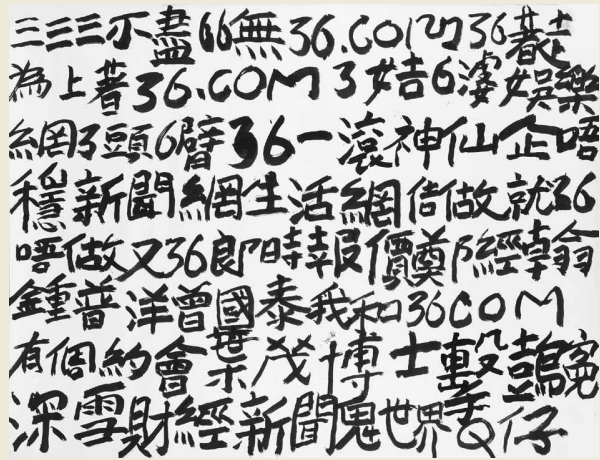 三三三不盡66無36.COM 36
為上著36.COM 3姑6婆娛樂
網3頭6臂36一滾神仙企唔
穩新聞網生活網信做就36
唔做又36郎時報價 經翰翁
鍾普洋曾國泰我和36COM
有個約會葉茂博士
深雪財經新聞鬼世界 仔